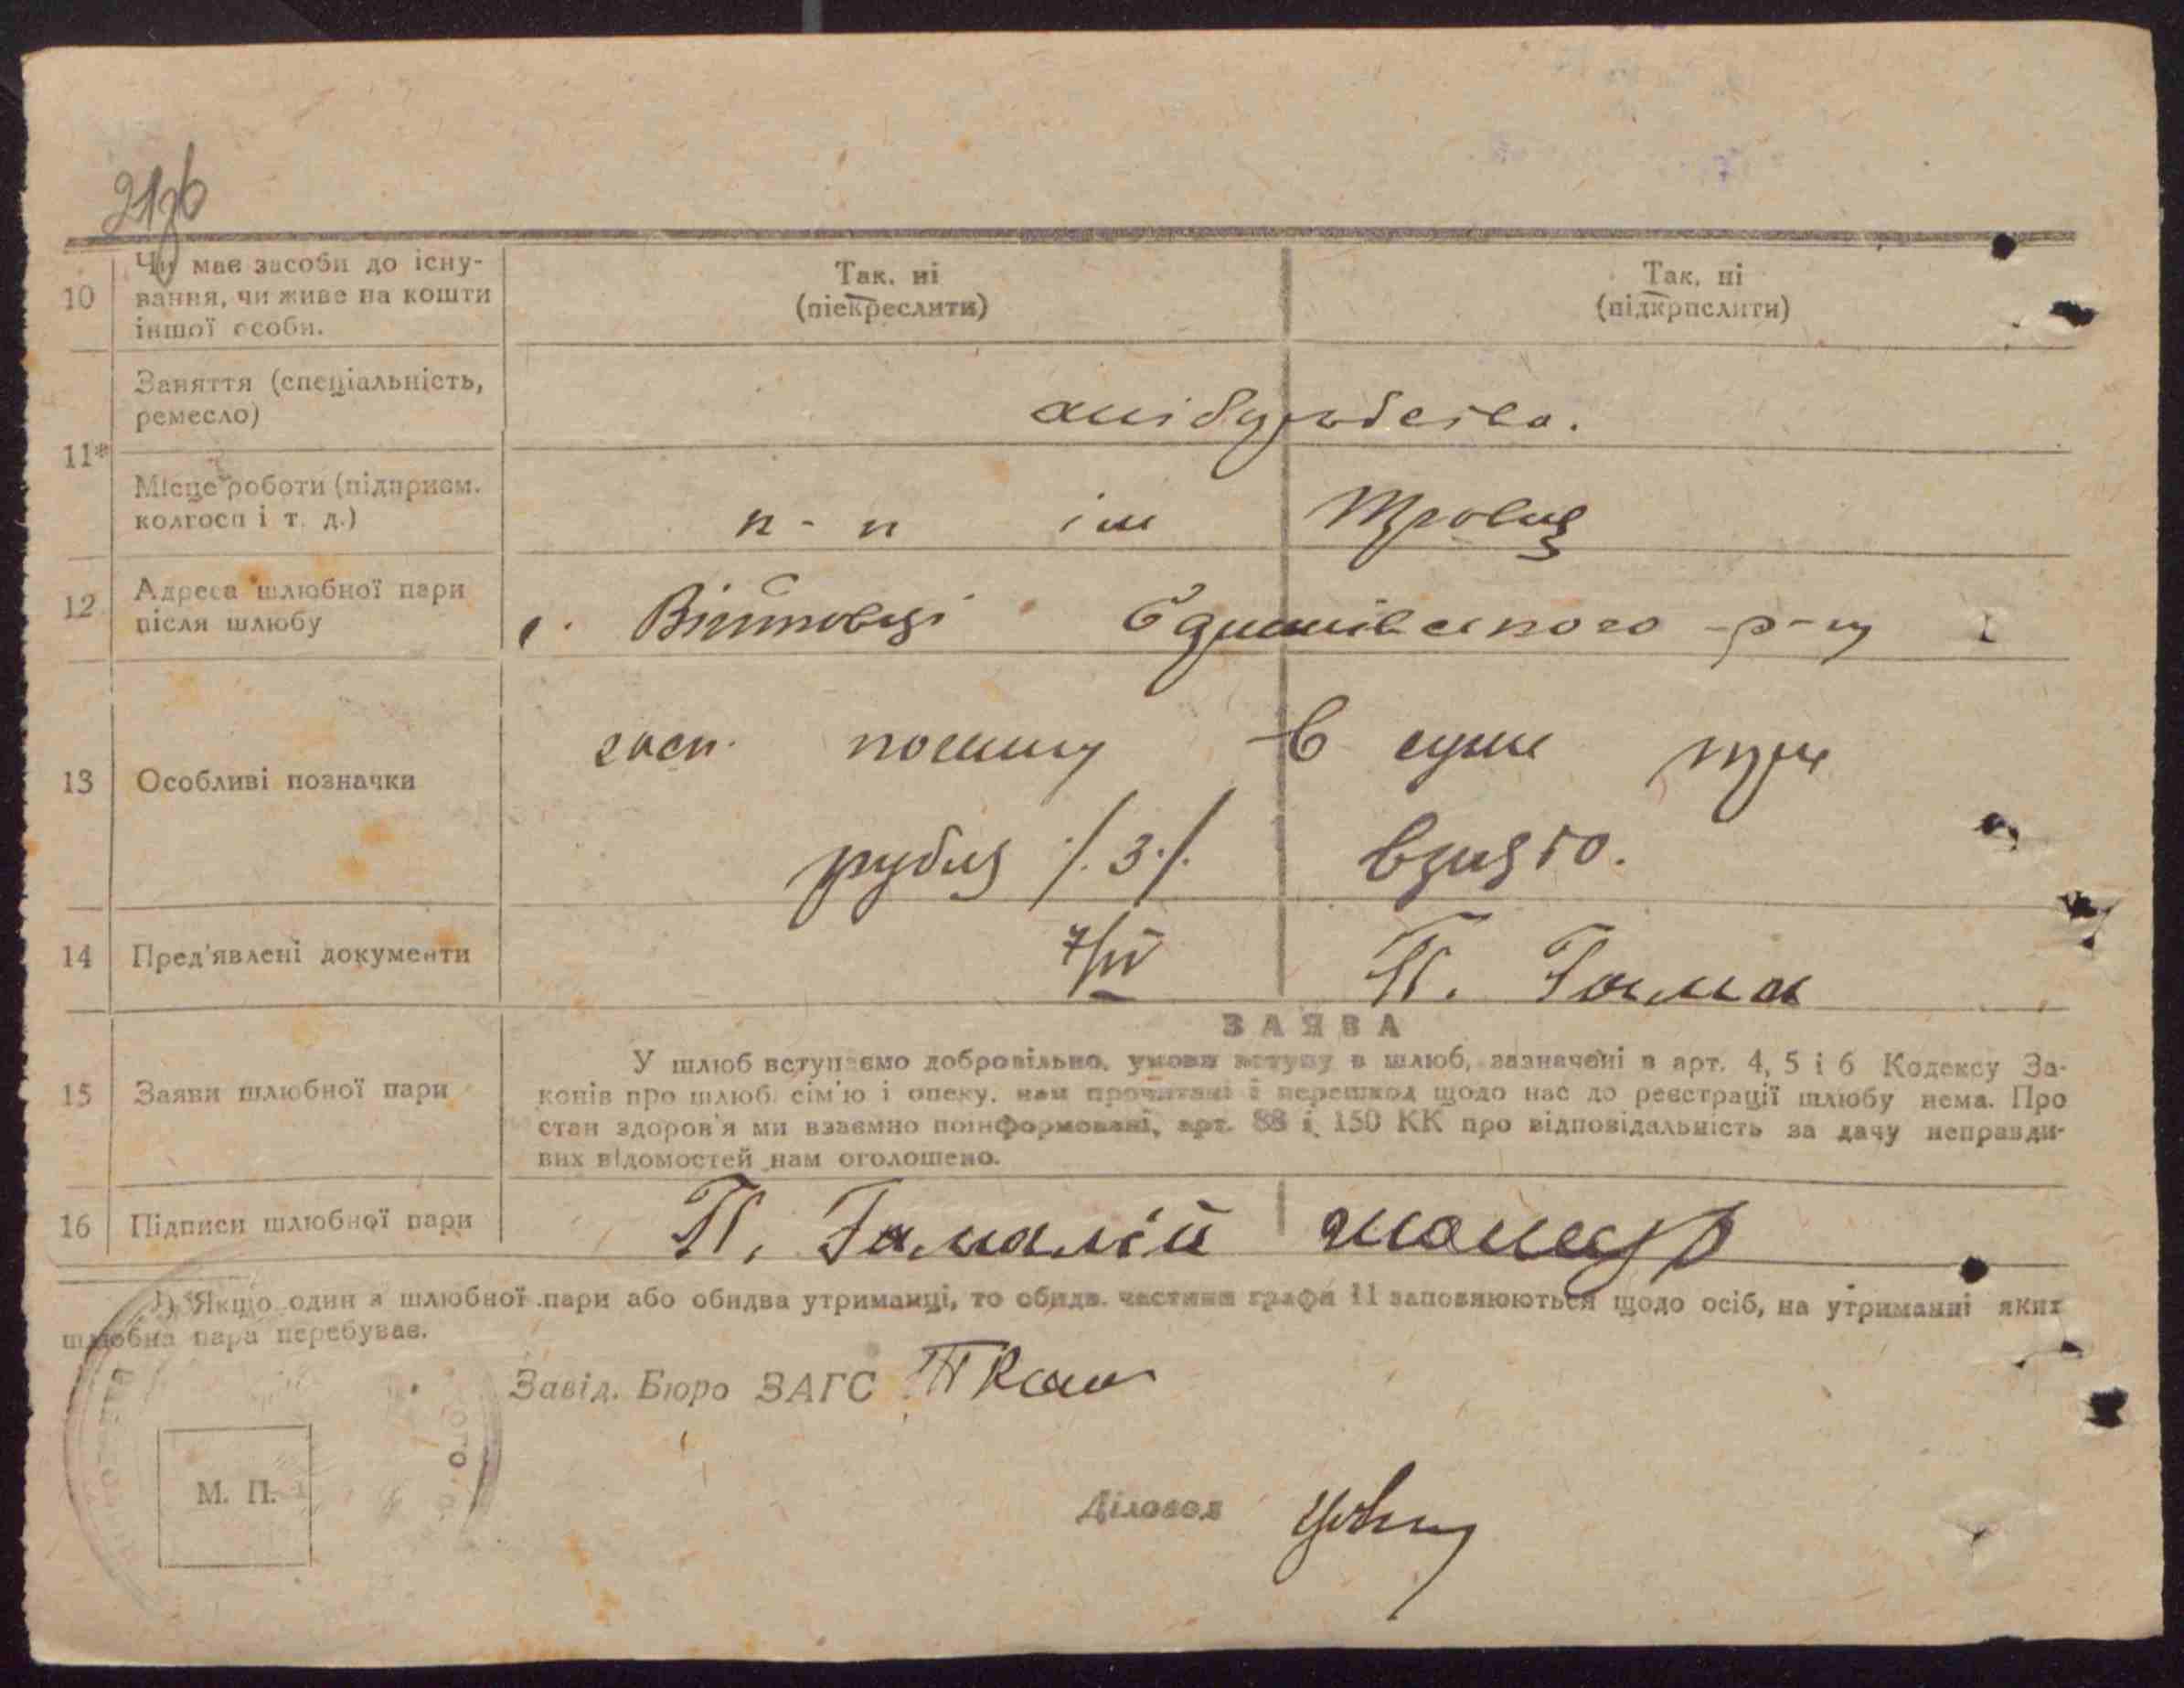 10 Чи має засоби до існу-
вання, чи живе на кошти
іншої особи.
Так, ні
(піекреслити)
Так, ні
(підкрпслити)
11*
Заняття (спеціальність,
ремесло)
Місце роботи (підприєм.
колгосп і т. д.)
п-п ім
12 Адреса шлюбної пари
після шлюбу
с. Війтовці р-ну
13 Особливі позначки
в сумі три
рубля /.3./ взято.
14 Пред'явлені документи
7/IV П. Гама
ЗАЯВА
15 Заяви шлюбної пари
У шлюб вступаємо добровільно, умови вступу в шлюб, зазначені в арт. 4, 5 і 6 Кодексу За-
конів про шлюб, сім'ю і опеку, нам прочитані і перешкод щодо нас до реєстрації шлюбу нема. Про
стан здоров'я ми взаємно поінформовані, арт. 88 і 150 КК про відповідальність за дачу неправди-
вих відомостей нам оголошено.
16 Підписи шлюбної пари
П. Гамалій
1) Якщо один з шлюбної пари або обидва утриманці, то обидв. частини графи 11 заповнюються щодо осіб, на утриманні яких
шлюбна пара перебуває.
Завід. Бюро ЗАГС
М. П.
Діловод